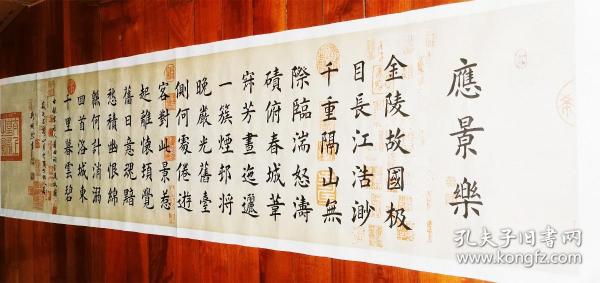 應景樂
金陵故國极
目長江浩渺
千重隔山無
際臨湍怒濤
磧俯春城葦
寂芳晝迤邐
一簇煙邨將
晚嚴光舊臺
側何處倦遊
客對此景惹
起離懷頓覺
舊日意魂黯
愁積幽恨綿
綿何計消溺
回首洛城東
千里暮雲碧
孔夫子旧书网
www.kongfz.com